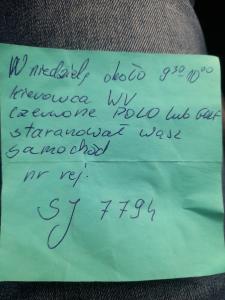 W niedzielę około 9³⁰ 10⁰⁰
kierowca WV
czerwone POLO lub Golf
staranował wasz
samochód
nr rej.
SJ 7794